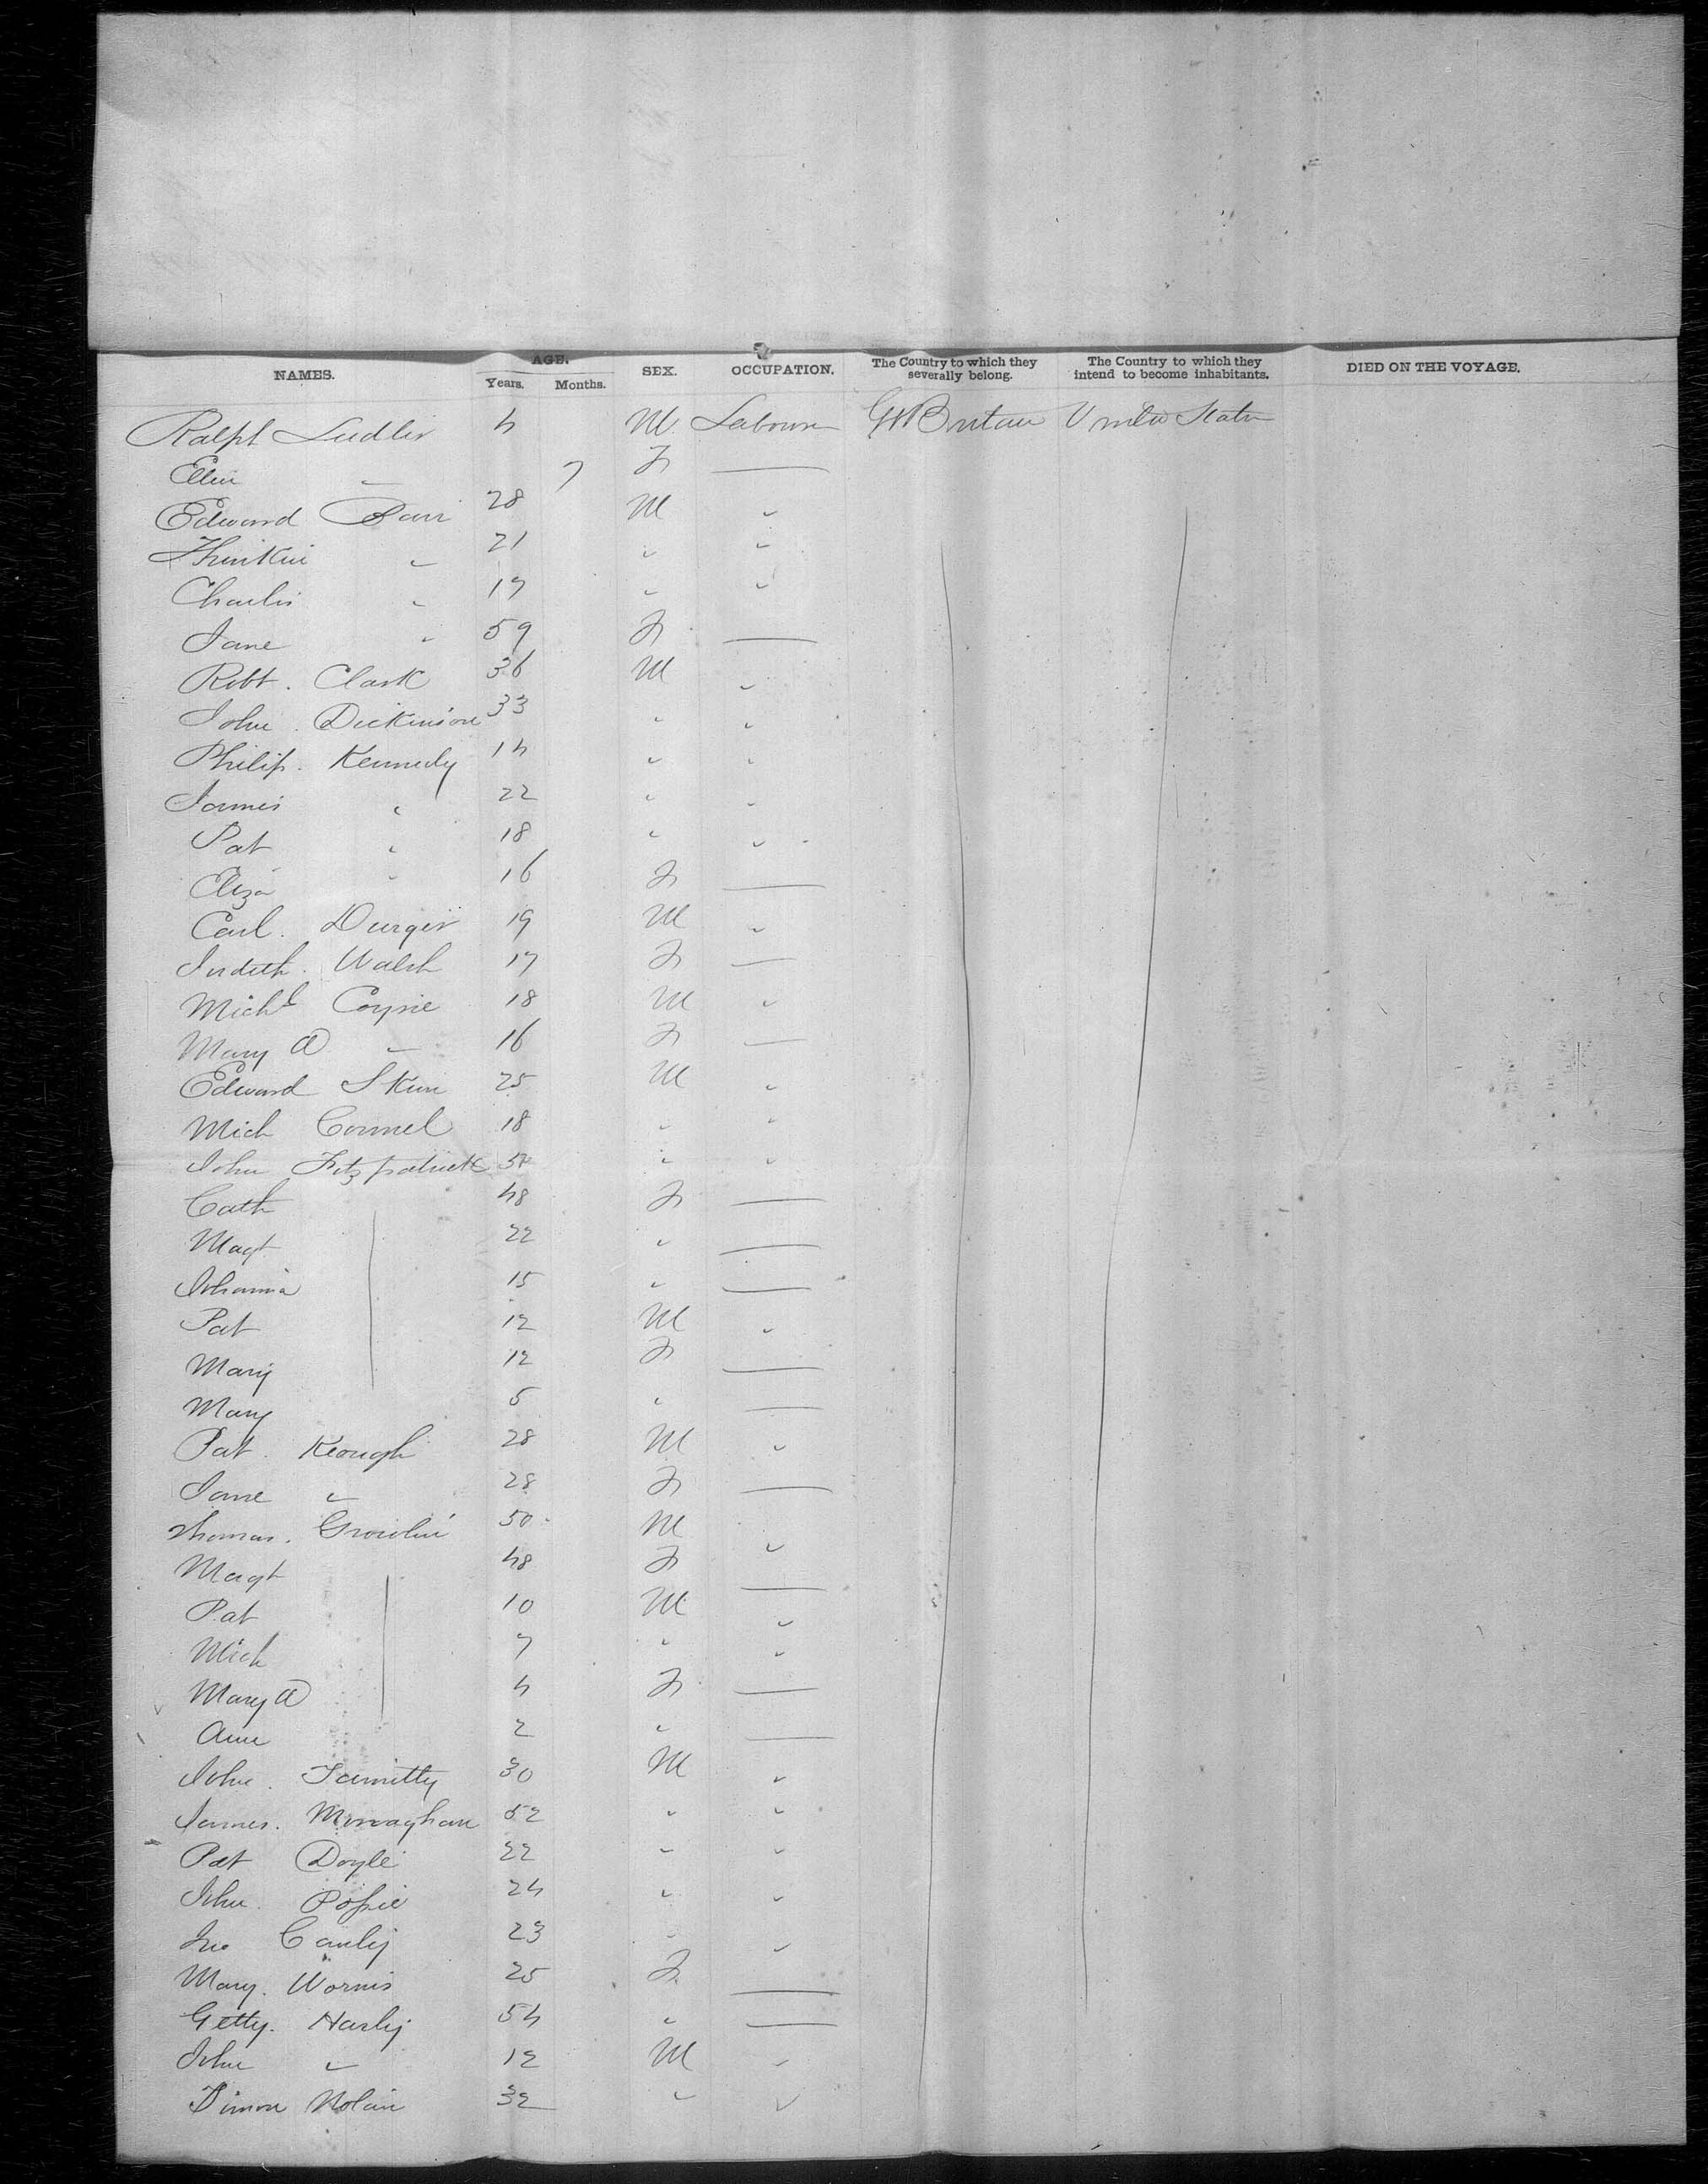 NAMES. AGE. Years. Months. SEX. OCCUPATION. The Country to which they severally belong. The Country to which they intend to become inhabitants. DIED ON THE VOYAGE.
Ralph Ludler 4 M Labourer Gt Britain United States
Ellen " 7 F —
Edward 28 M "
" 21 " "
Charles " 17 " "
Jane " 59 F —
Robt. Clark 36 M "
John. Dickinson 33 " "
Philip. Kennedy 14 " "
James " 22 " "
Pat " 18 " "
Eliza " 16 F —
Carl. 19 M "
Judith. Walsh 17 F —
Michl Coyne 18 M "
Mary A " 16 F —
Edward 25 M "
Mich Connel 18 " "
John Fitzpatrick " "
Cath 48 F —
Magt 22 " —
Johanna 15 " —
Pat 12 M "
Mary 12 F —
Mary 5 " —
Pat. Keough 28 M "
Jane " 28 F —
Thomas. 50 M "
Magt 48 F —
Pat 10 M "
Mich 7 " "
Mary A 4 F —
Ann 2 " —
John. 30 M "
James. Monaghan 52 " "
Pat Doyle 22 " "
John. 24 " "
Jno 23 " "
Mary. 25 F —
Getty. Harley 54 " —
John " 12 M "
Simon Nolan 32 " "